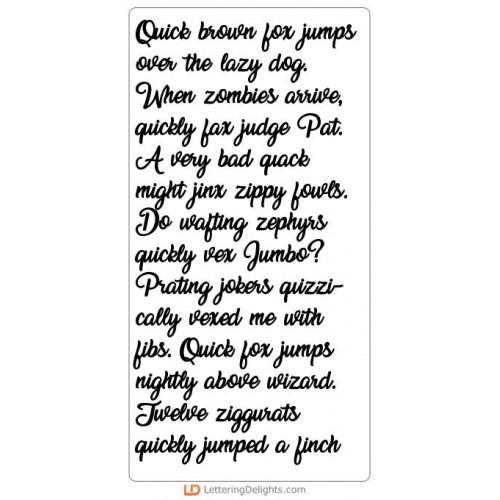 Quick brown fox jumps
over the lazy dog.
When zombies arrive,
quickly fax judge Pat.
A very bad quack
might jinx zippy fowls.
Do wafting zephyrs
quickly vex Jumbo?
Prating jokers quizzi-
cally vexed me with
fibs. Quick fox jumps
nightly above wizard.
Twelve ziggurats
quickly jumped a finch
LD LetteringDelights.com